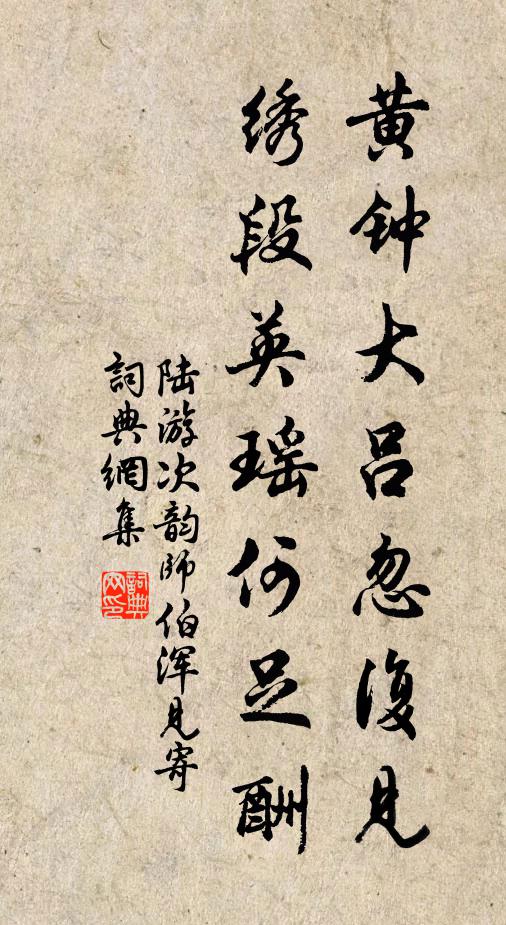 黄钟大吕忽復见
绣段英瑶何足酬
陆游次韵师伯浑见寄
詞典網集
詞典网印